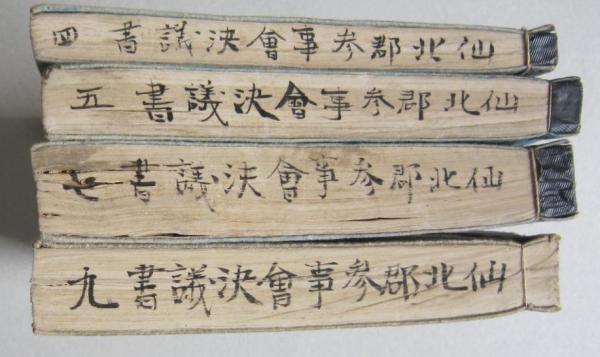 仙北郡参事會決議書 四
仙北郡参事會決議書 五
仙北郡参事會決議書 七
仙北郡参事會決議書 九